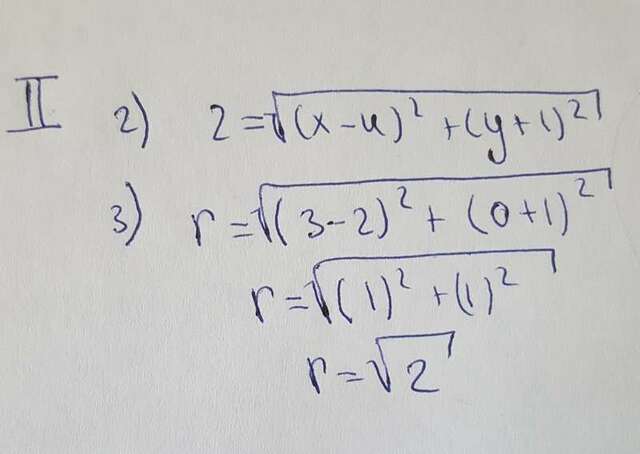 II 2) 2=√(x-4)² +(y+1)²
3) r=√(3-2)² + (0+1)²
r=√(1)² +(1)²
r=√2